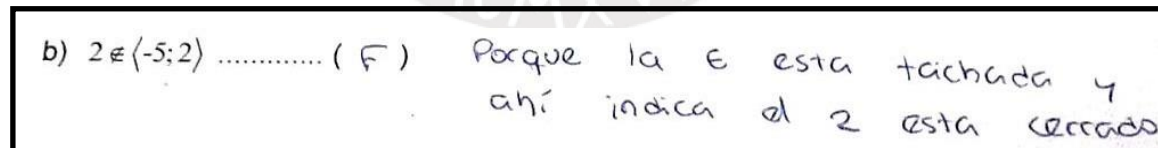 b) 2 ∉ ⟨-5; 2⟩ ............. ( F ) Porque la ∈ esta tachada y
ahí indica el 2 esta cerrado